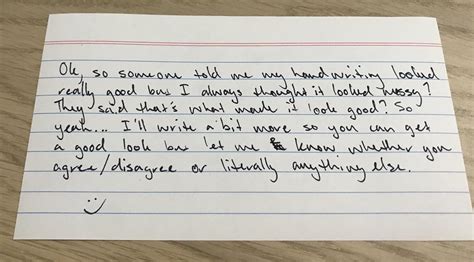 Ok, so someone told me my handwriting looked
really good but I always thought it looked messy?
They said that's what made it look good? So
yeah... I'll write a bit more so you can get
a good look but let me know whether you
agree/disagree or literally anything else.
:)